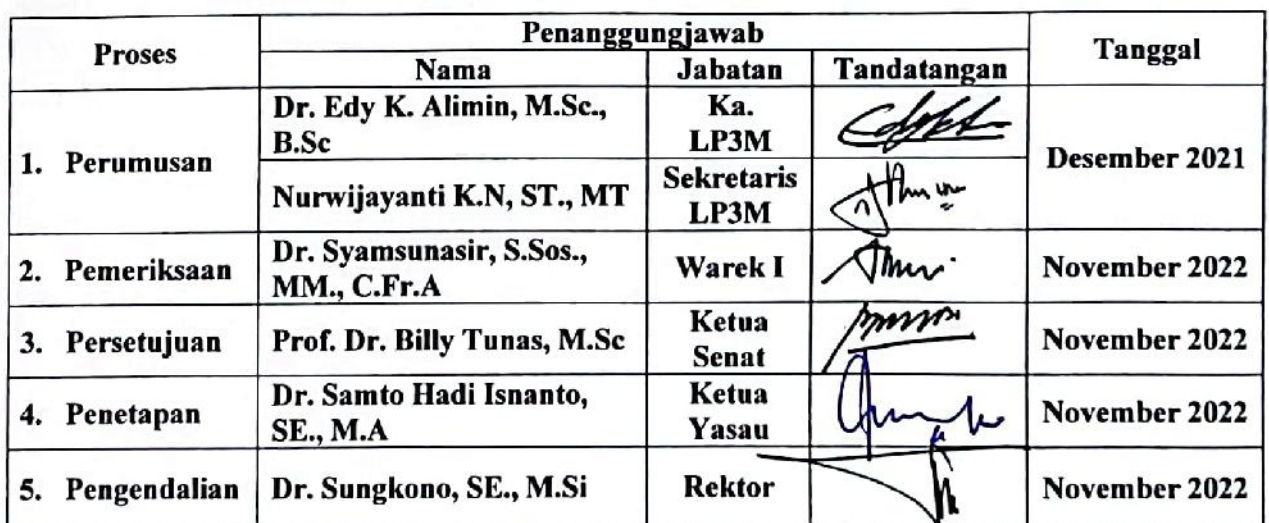 Proses
Penanggungjawab
Tanggal
Nama
Jabatan
Tandatangan
1. Perumusan
Dr. Edy K. Alimin, M.Sc.,
B.Sc
Ka.
LP3M
Desember 2021
Nurwijayanti K.N, ST., MT
Sekretaris
LP3M
2. Pemeriksaan
Dr. Syamsunasir, S.Sos.,
MM., C.Fr.A
Warek I
November 2022
3. Persetujuan
Prof. Dr. Billy Tunas, M.Sc
Ketua
Senat
November 2022
4. Penetapan
Dr. Samto Hadi Isnanto,
SE., M.A
Ketua
Yasau
November 2022
5. Pengendalian
Dr. Sungkono, SE., M.Si
Rektor
November 2022